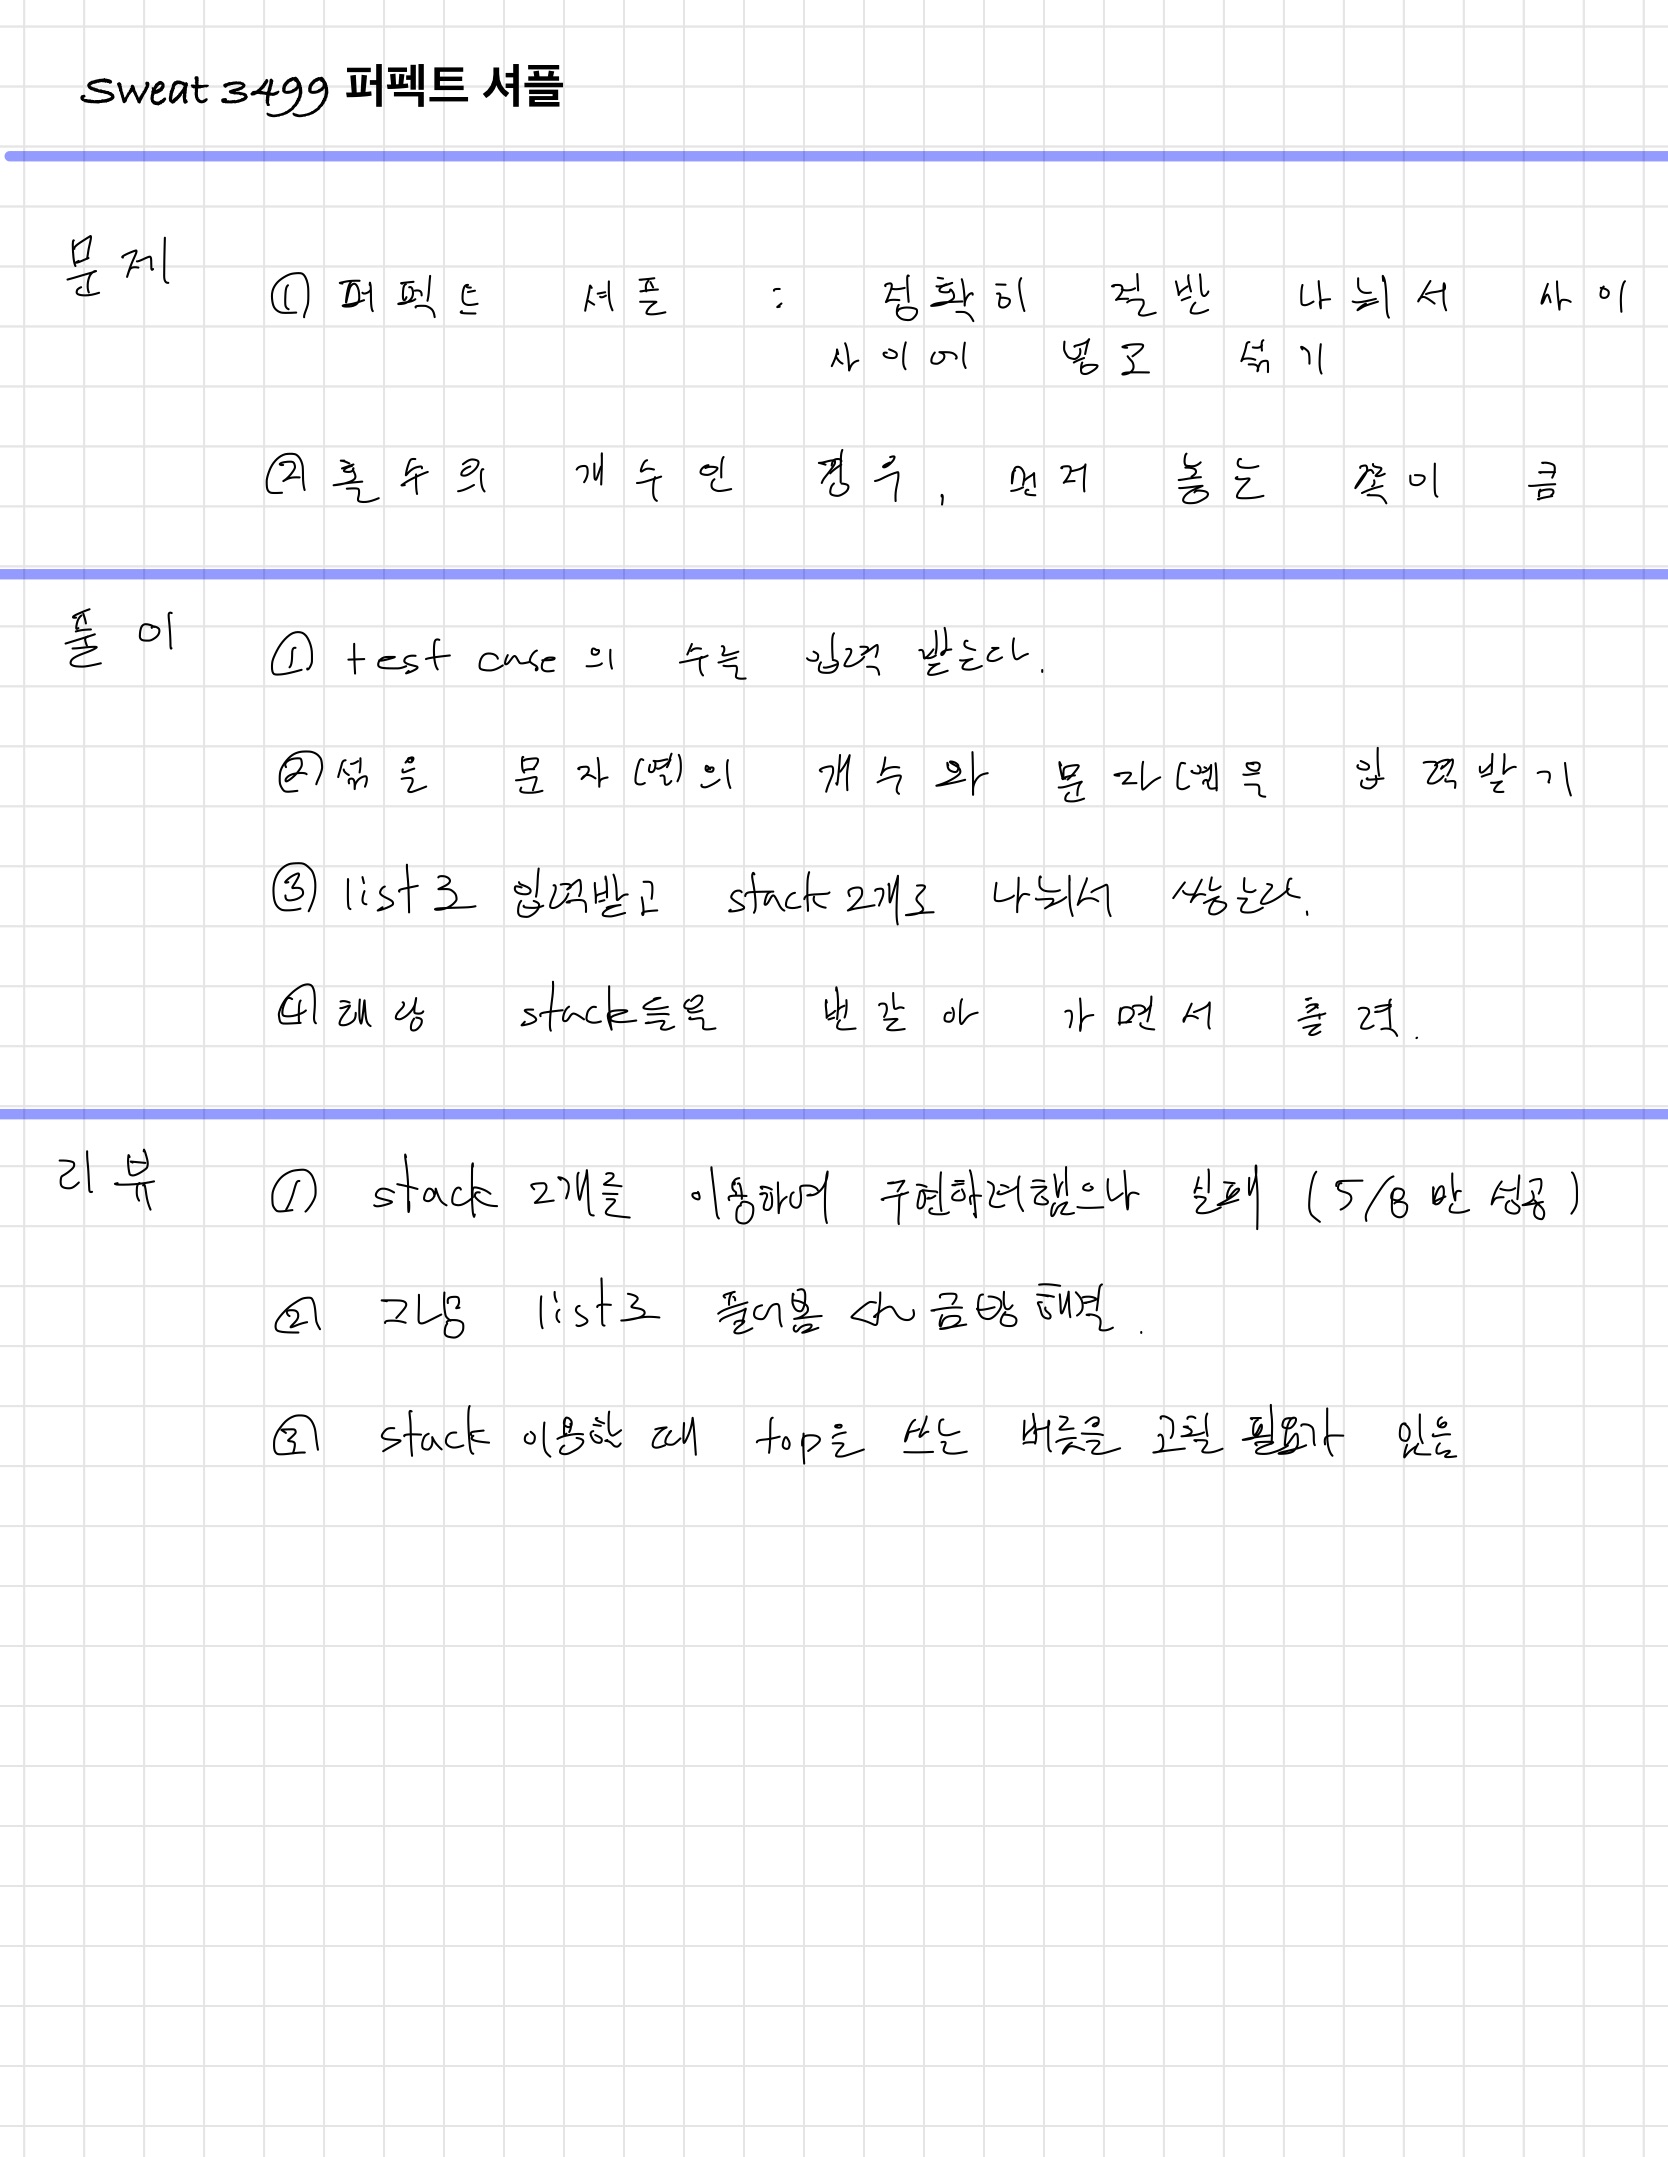 Sweat 3499 퍼펙트 셔플
문제
① 퍼펙트 셔플 : 정확히 절반 나눠서 사이
사이에 넣고 섞기
② 홀수의 개수인 경우, 먼저 놓는 쪽이 큼
풀이
① test case의 수를 입력 받는다.
② 섞을 문자(열)의 개수와 문자(열)을 입력받기
③ list로 입력받고 stack 2개로 나눠서 쌓는다.
④ 해당 stack들을 번갈아 가면서 출력.
리뷰
① stack 2개를 이용하여 구현하려했으나 실패 (5/8만 성공)
② 그냥 list로 풀어봄 금방해결.
③ stack 이용할 때 top을 쓰는 버릇을 고칠 필요가 있음